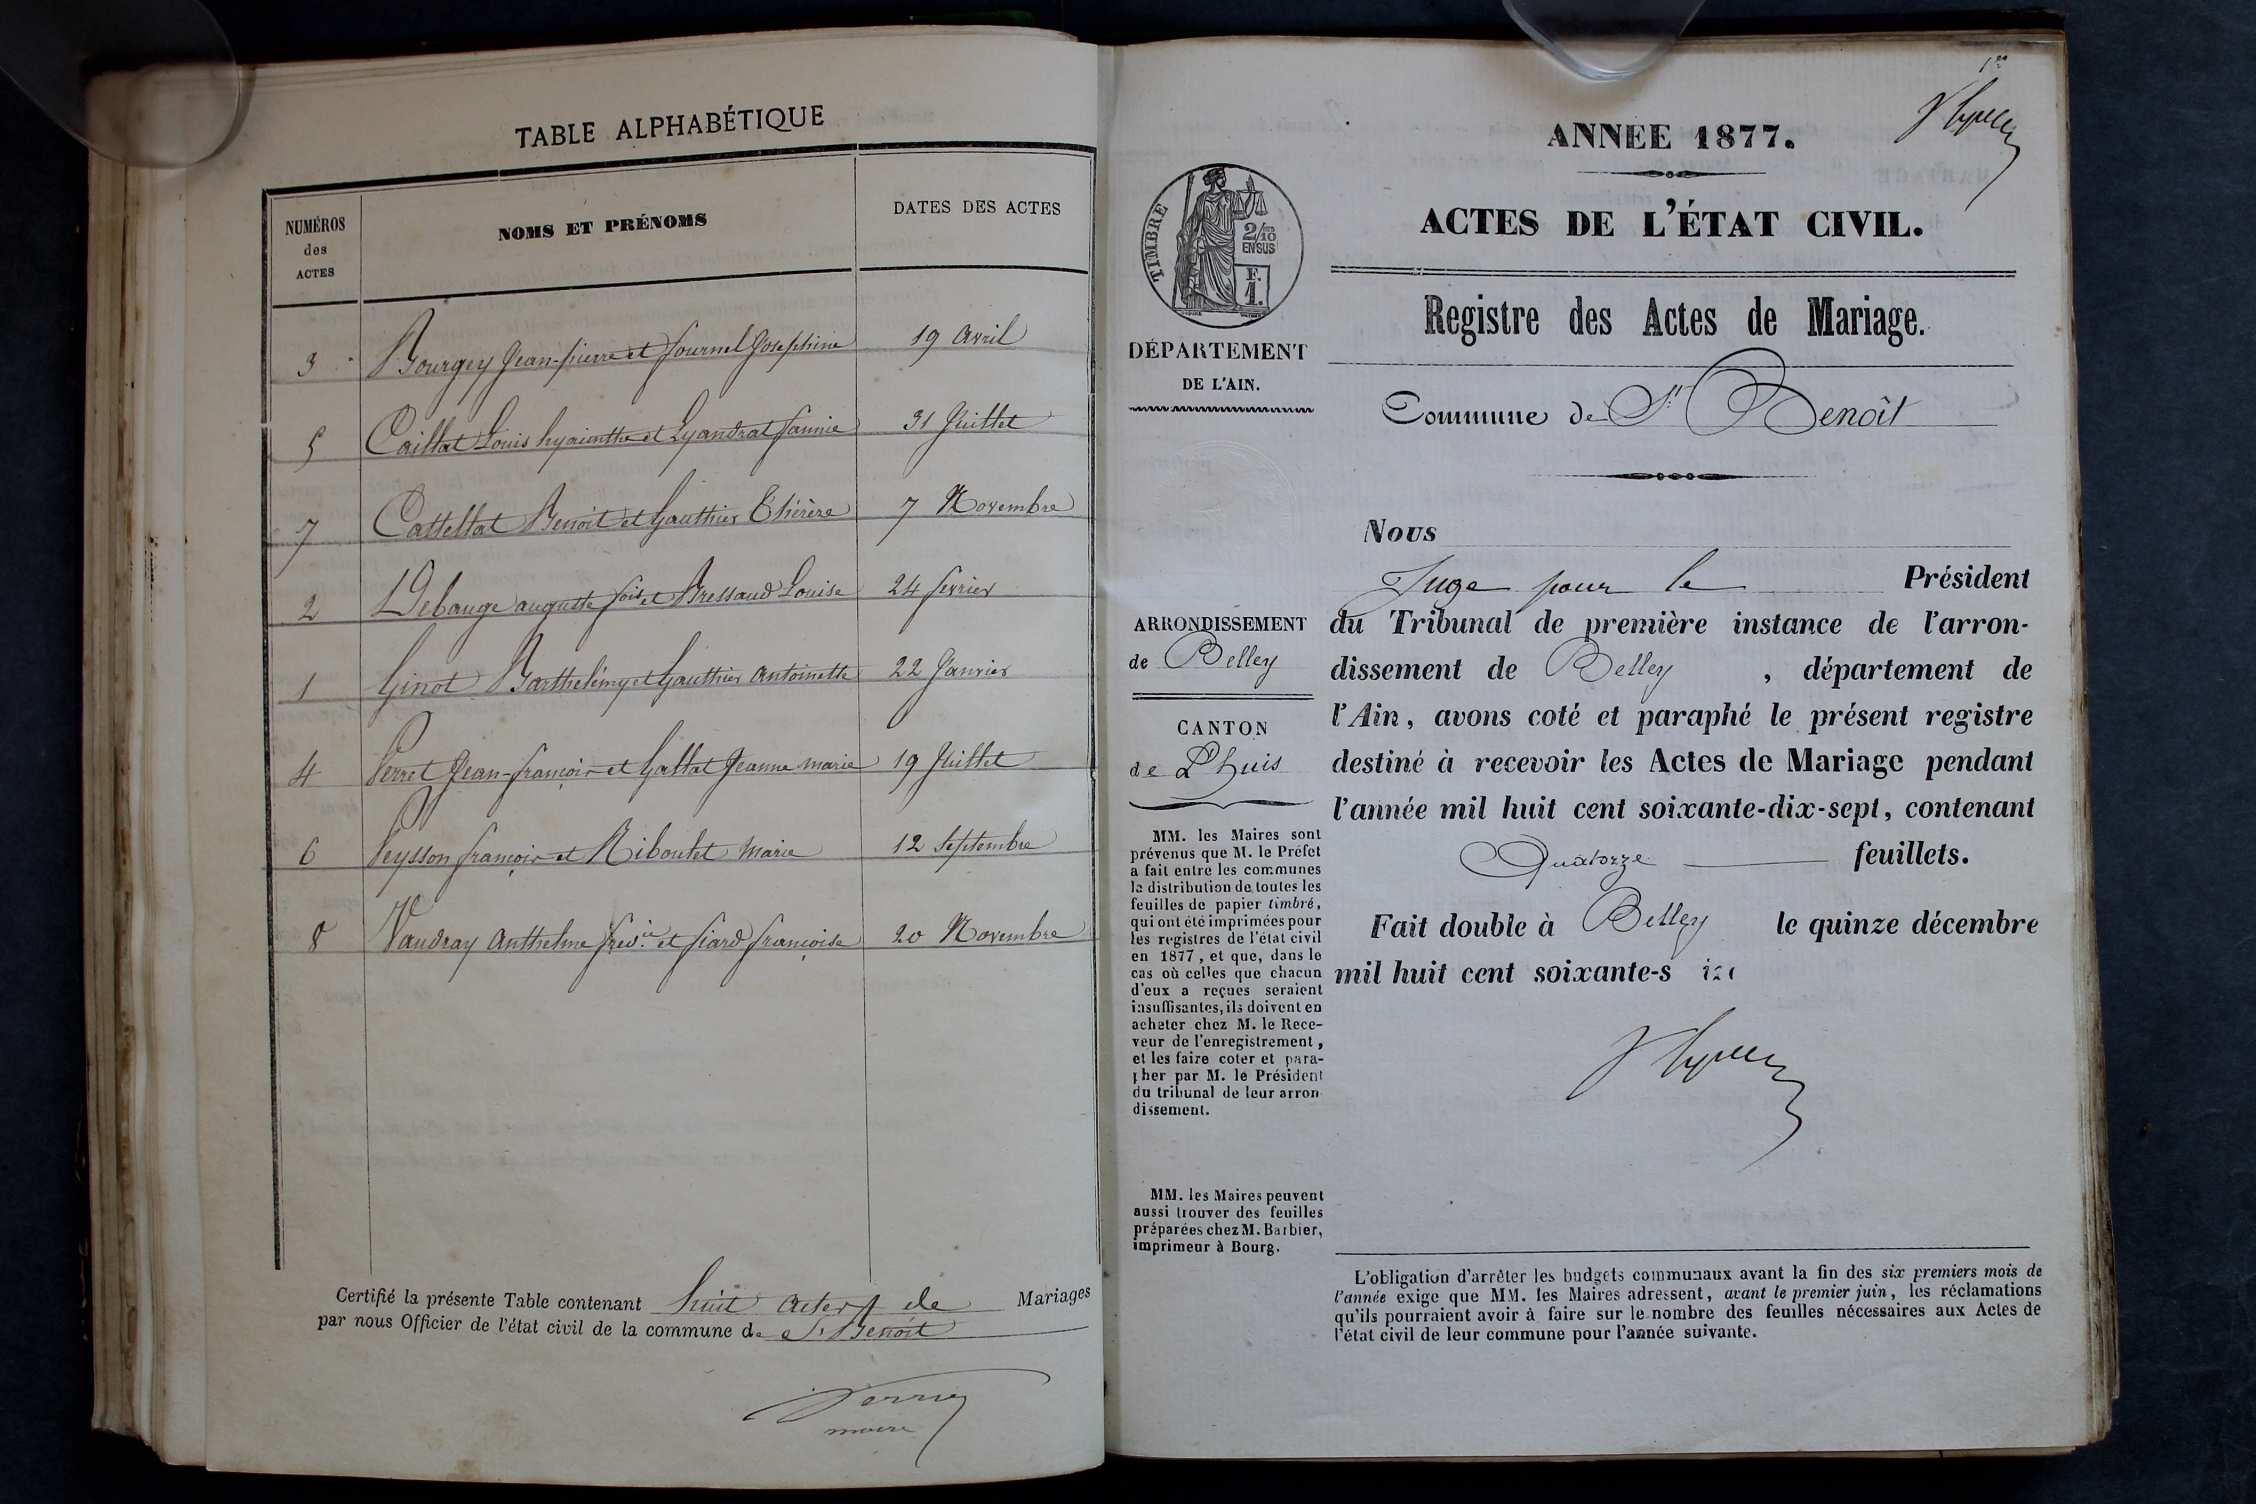 TABLE ALPHABÉTIQUE
NUMÉROS
des
ACTES
NOMS ET PRÉNOMS
DATES DES ACTES
3 Bourgey Jean-pierre et fournel Josephine 19 Avril
5 Caillat Louis hyacinthe et Lyandrat fannie 31 Juillet
7 Cattellat Benoit et Gauthier Thérère 7 Novembre
2 Debauge auguste fois et Bressaud Louise 24 fevrier
1 Ginot Barthelémy et Gauthier Antoinette 22 Janvier
4 Perret Jean-françois et Gallat Jeanne marie 19 Juillet
6 Peysson françois et Riboulet Marie 12 Septembre
8 Vaudray Anthelme et fiard françoise 20 Novembre
Certifié la présente Table contenant huit actes de Mariages
par nous Officier de l'état civil de la commune de St Benoit
Perrier
maire
1er
ANNEE 1877.
TIMBRE
2/10
EN SUS
F.
1.
ACTES DE L'ÉTAT CIVIL.
Registre des Actes de Mariage.
DÉPARTEMENT
DE L'AIN.
Commune de St Benoît
ARRONDISSEMENT
de Belley
CANTON
de L'huis
MM. les Maires sont
prévenus que M. le Préfet
a fait entre les communes
la distribution de toutes les
feuilles de papier timbré,
qui ont été imprimées pour
les registres de l'état civil
en 1877, et que, dans le
cas où celles que chacun
d'eux a reçues seraient
insuffisantes, ils doivent en
acheter chez M. le Rece-
veur de l'enregistrement,
et les faire coter et para-
pher par M. le Président
du tribunal de leur arron
dissement.
MM. les Maires peuvent
aussi trouver des feuilles
préparées chez M. Barbier,
imprimeur à Bourg.
Nous
Juge pour le Président
du Tribunal de première instance de l'arron-
dissement de Belley, département de
l'Ain, avons coté et paraphé le présent registre
destiné à recevoir les Actes de Mariage pendant
l'année mil huit cent soixante-dix-sept, contenant
Quatorze feuillets.
Fait double à Belley le quinze décembre
mil huit cent soixante-s
L'obligation d'arrêter les budgets communaux avant la fin des six premiers mois de
l'année exige que MM. les Maires adressent, avant le premier juin, les réclamations
qu'ils pourraient avoir à faire sur le nombre des feuilles nécessaires aux Actes de
l'état civil de leur commune pour l'année suivante.